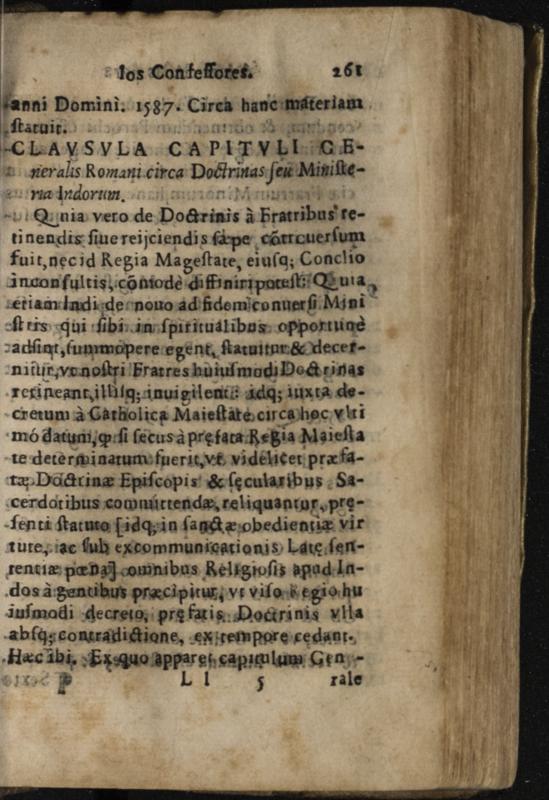 los Confessores. 261
anni Domini. 1587. Circa hanc materiam
statuit.
CLAVSVLA CAPITVLI GE-
neralis Romani circa Doctrinas seu Ministe-
ria Indorum.
Quia vero de Doctrinis à Fratribus re-
tinendis siue reijciendis sæpe cõtrouersum
fuit, nec id Regia Magestate, eiusq; Concilio
inconsultis, cõmodè diffiniri potest: Quia
etiam Indi de nouo ad fidem conuersi Mini
stris qui sibi in spiritualibus opportunè
adsint, summopere egent, statuitur & decer-
nitur, vt nostri Fratres huiusmodi Doctrinas
retineant, illisq; inuigilent: idq; iuxta de-
cretum à Catholica Maiestate circa hoc vlti
mó datum, q si secus à pręfata Regia Maiesta
te determinatum fuerit, vt videlicet præfa-
tæ Doctrinæ Episcopis & sęcularibus Sa-
cerdotibus committendæ, reliquantur, prę-
senti statuto [idq; in sanctæ obedientiæ vir
tute, ac sub excommunicationis Latę sen-
tentiæ pœna] omnibus Religiosis apud In-
dos àgentibus præcipitur, vt viso Regio hu
iusmodi decreto, pręfatis Doctrinis vlla
absq; contradictione, ex tempore cedant.
Hæc ibi. Ex quo apparet capitulum Gen-
Ll 5 rale